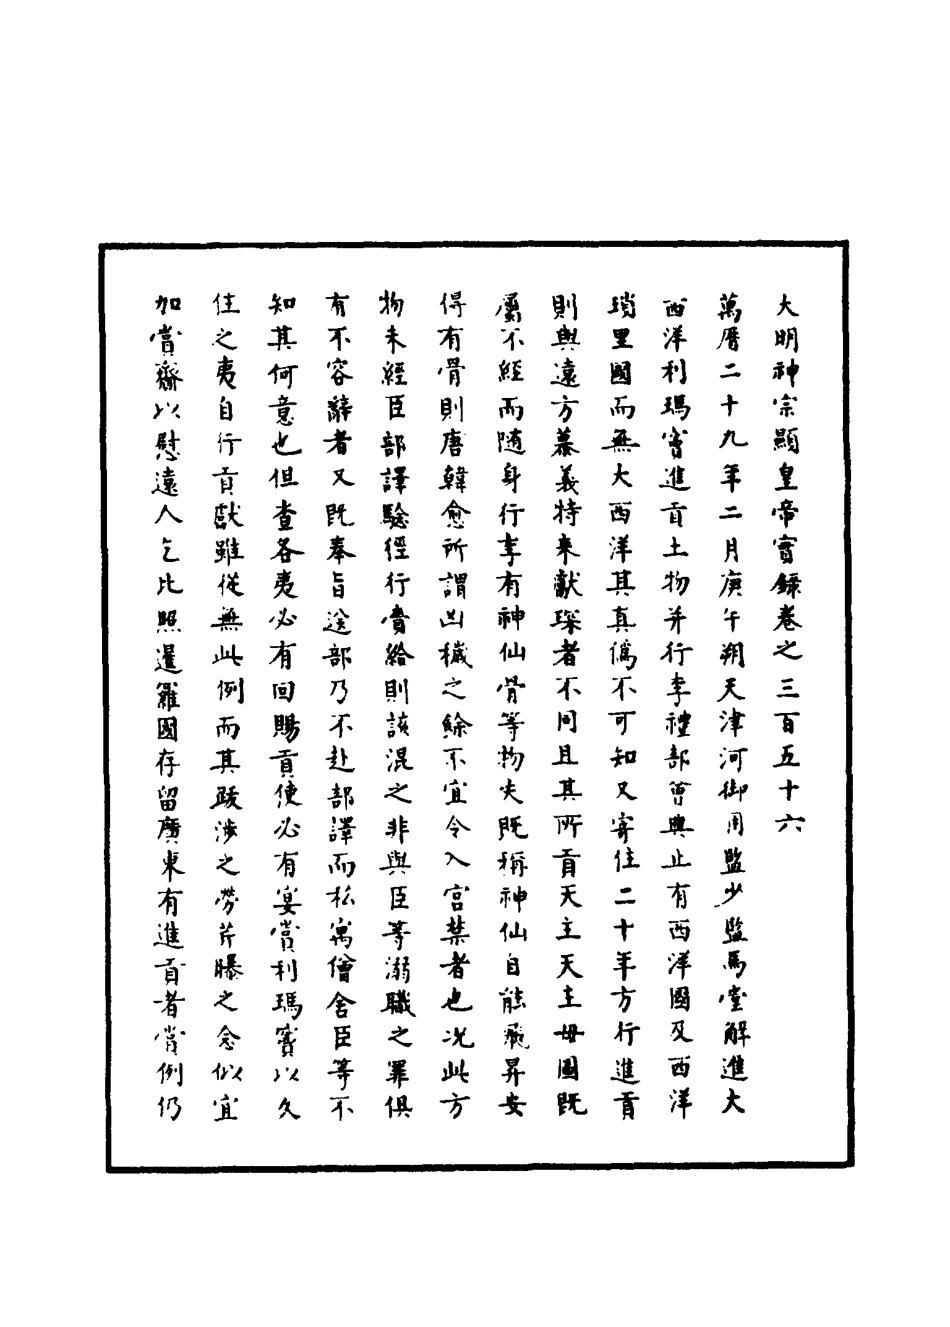 大明神宗顯皇帝實錄卷之三百五十六
萬曆二十九年二月庚午朔天津河御用監少監馬堂解進大
西洋利瑪竇進貢土物并行李禮部曾典止有西洋國及西洋
瑣里國而無大西洋其真偽不可知又寄住二十年方行進貢
則與遠方慕義特來獻琛者不同且其所貢天主天主母圖既
屬不經而随身行李有神仙骨等物夫既稱神仙自能飛昇安
得有骨則唐韓愈所謂凶穢之餘不宜令入宮禁者也况此方
物未經臣部譯驗徑行賫給則該混之非與臣等溺職之罪俱
有不容辭者又既奉旨送部乃不赴部譯而私寓僧舍臣等不
知其何意也但查各夷必有回賜貢使必有宴賞利瑪竇以久
住之夷自行貢獻雖從無此例而其跋涉之勞芹曝之念似宜
加賞齎以慰遠人乞比照暹羅國存留廣東有進貢者賞例仍